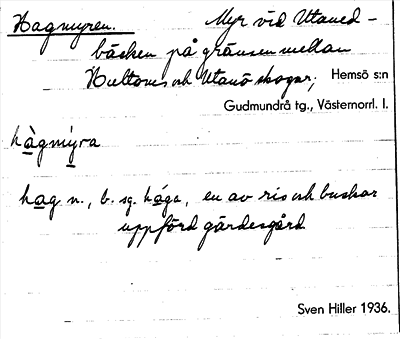 Hagmyren. Myr vid Utaned-
bäcken på gränsen mellan
Hultoms och Utanö skogar; Hemsö s:n
Gudmundrå tg., Västernorrl. l.
hàgmýra
hag n., b. sg. hága, en av ris och buskar
uppförd gärdesgård.
Sven Hiller 1936.